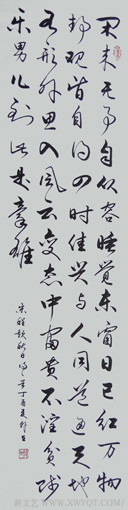 闲来无事不从容睡觉东窗日已红万物
静观皆自得四时佳兴与人同道通天地
有形外思入风云变态中富贵不淫贫贱
乐男儿到此是豪雄
宋程颢秋日诗丁酉夏
新文艺 WWW.XWYQT.COM